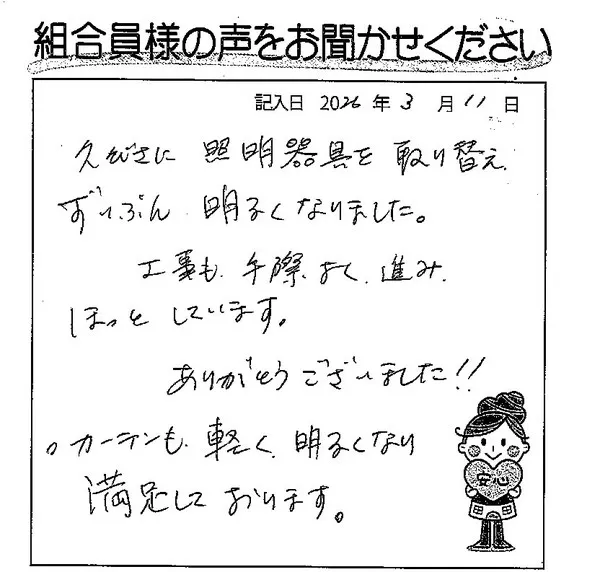 組合員様の声をお聞かせください
記入日 2026 年 3 月 11 日
久びさに 照明器具を 取り替え
ずいぶん 明るくなりました。
工事も 手際よく 進み
ほっと しています。
ありがとうございました!!
。カーテンも 軽く 明るくなり
満足して おります。
安心